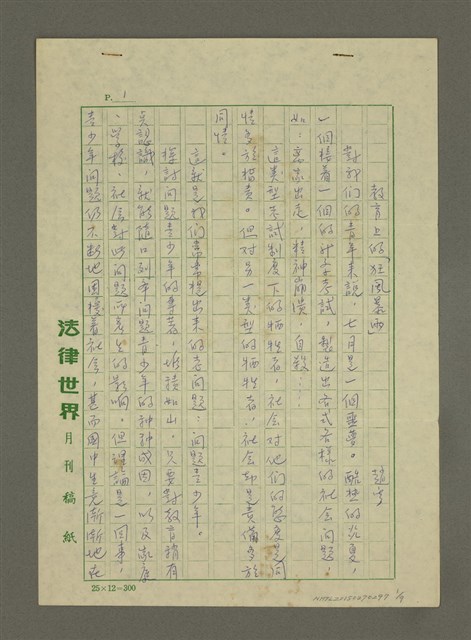 P. 1
教育上的「狂風暴雨」
對我們的青年來說，七月是一個噩夢。酷熱的炎夏，
一個接着一個的升學考試，製造出各式各樣的社會問題，
如：離家出走，精神崩潰，自殺……
這類型考試制度下的犧牲者，社會对他們的態度是同
情多於指責。但对另一类型的牺牲者，社会却是責備多於
同情。
這就是我們常常提出來的老問題：問題青少年。
探討問題青少年的專著，堆積如山，只要對教育稍有
点認識，就能隨口列出問題青少年的种种成因，以及家庭
、學校、社会對此問題所產生的影响。但理論是一回事，
青少年問題仍不斷地困擾着社会，甚而國中生光漸漸地在
法律世界
月刊稿紙
25×12＝300
1/9